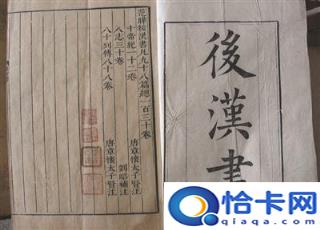 後漢書
范曄後漢書凡九十八篇總一百三十卷
十帝紀一十二卷 唐章懷太子賢注
八志三十卷 劉昭補注
八十列傳八十八卷 唐章懷太子賢注
恰卡网
qiaqa.com